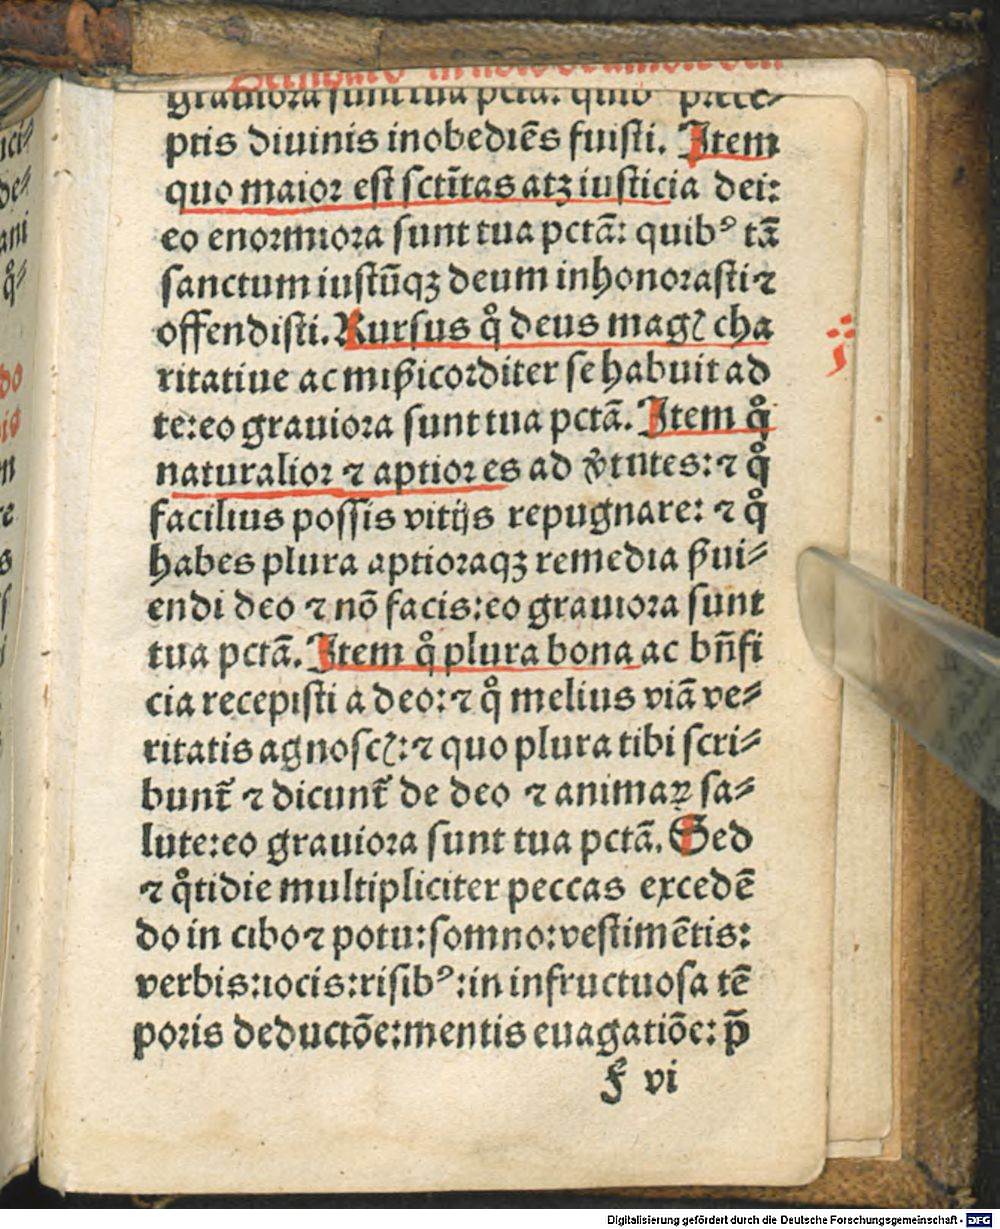 grauiora sunt tua pctā. quib⁹ prece⸗
ptis diuinis inobediēs fuisti. Item
quo maior est sctītas atqꝫ iusticia dei:
eo enormiora sunt tua pctā: quib⁹ tā
sanctum iustūqꝫ deum inhonorasti ⁊
offendisti. Rursus qͦ deus magꝭ cha
ritatiue ac mīsicorditer se habuit ad
te: eo grauiora sunt tua pctā. Item qͦ
naturalior ⁊ aptior es ad v̓tutes: ⁊ qͦ
facilius possis vitijs repugnare: ⁊ qͦ
habes plura aptioraqꝫ remedia ẜui⸗
endi deo ⁊ nō facis: eo grauiora sunt
tua pctā. Item qͦ plura bona ac bn̄fi
cia recepisti a deo: ⁊ qͦ melius viā ve⸗
ritatis agnoscꝭ: ⁊ quo plura tibi scri⸗
bunt̄ ⁊ dicunt̄ de deo ⁊ animaꝝ sa⸗
lute: eo grauiora sunt tua pctā. Sed
⁊ qͦtidie multipliciter peccas excedē
do in cibo ⁊ potu: somno: vestimētis:
verbis: iocis: risib⁹: in infructuosa tē
poris deductōe: mentis euagatiōe: p̄
f vi
Digitalisierung gefördert durch die Deutsche Forschungsgemeinschaft - DFG